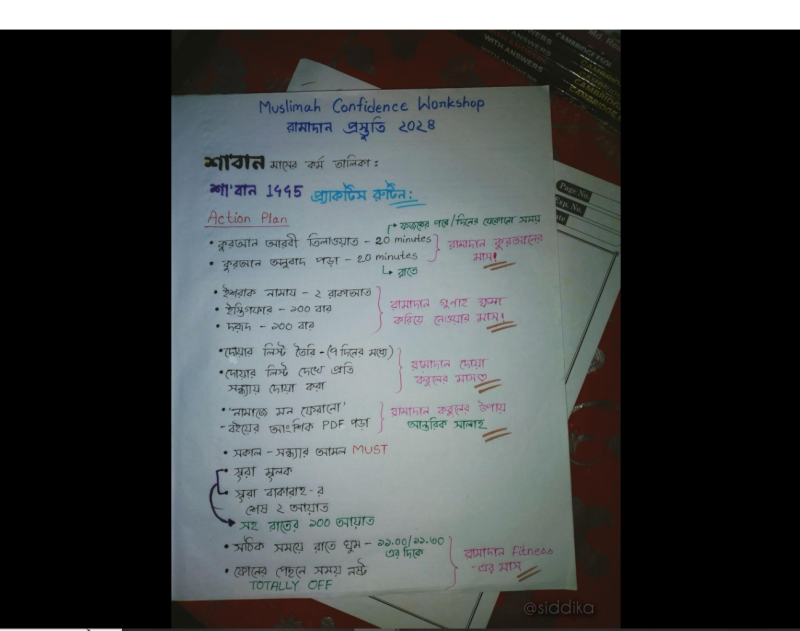 Muslimah Confidence Workshop
রামাদান প্রস্তুতি ২০২৪
শা'বান মাসের কর্ম তালিকা :
শা'বান 1445 প্র্যাকটিস রুটিন:
Action Plan
ফজরের পরে/দিনের যেকোনো সময়
• কুরআন আরবী তিলাওয়াত - 20 minutes
• কুরআন অনুবাদ পড়া - 20 minutes
রাতে
রামাদান কুরআনের
মাস!
• ইশরাক নামায - ২ রাকাআত
• ইস্তিগফার - ১০০ বার
• দরূদ - ১০০ বার
রামাদান গুনাহ ক্ষমা
করিয়ে নেওয়ার মাস!
• দোয়ার লিস্ট তৈরি - (৭ দিনের মধ্যে)
• দোয়ার লিস্ট দেখে প্রতি
সন্ধ্যায় দোয়া করা
রামাদান দোয়া
কবুলের মাস
• 'নামাজে মন ফেরানো'
- বইয়ের আংশিক PDF পড়া
রামাদান কবুলের উপায়
আন্তরিক সালাহ
• সকাল - সন্ধ্যার আমল MUST
• সূরা মুলক
• সূরা বাকারাহ - র
শেষ ২ আয়াত
সহ রাতের ১০০ আয়াত
• সঠিক সময়ে রাতে ঘুম - ১১.00/১১.৩০
এর দিকে
• ফোনের পেছনে সময় নষ্ট
TOTALLY OFF
রামাদান Fitness
- এর মাস
@siddika
WITH ANSWERS
WITH ANSWERS
Page No.
Exp. No.